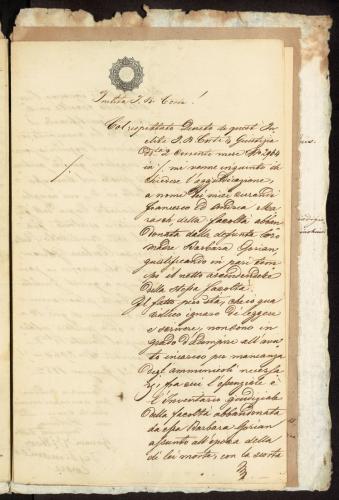 Inclita I. R. Corte!
Col rispettato Decreto di questa In-
clita I. R. Corte di Giustizia
d. d.to corrente mese N.o 2964
mi venne ingiunto di
chiedere l'aggiudicazione,
a nome dei miei curandi
Francesco ed Andrea
della facoltà abban-
donata dalla defunta loro
madre Barbara Gorian
qualificando in pari tem-
po il netto ascendente
della stessa facoltà.
Gli è fatto però sta, che io qua
ignaro di leggere
e scrivere, non sono in
grado d'adempire all'avu-
to incarico per mancanza
degli amminicoli necessa
ri, fra cui l'essenziale è
l'Inventario giudiziale
della facoltà abbandonata
da essa Barbara Gorian
assunto all'epoca della
di lei morte, con la scorta